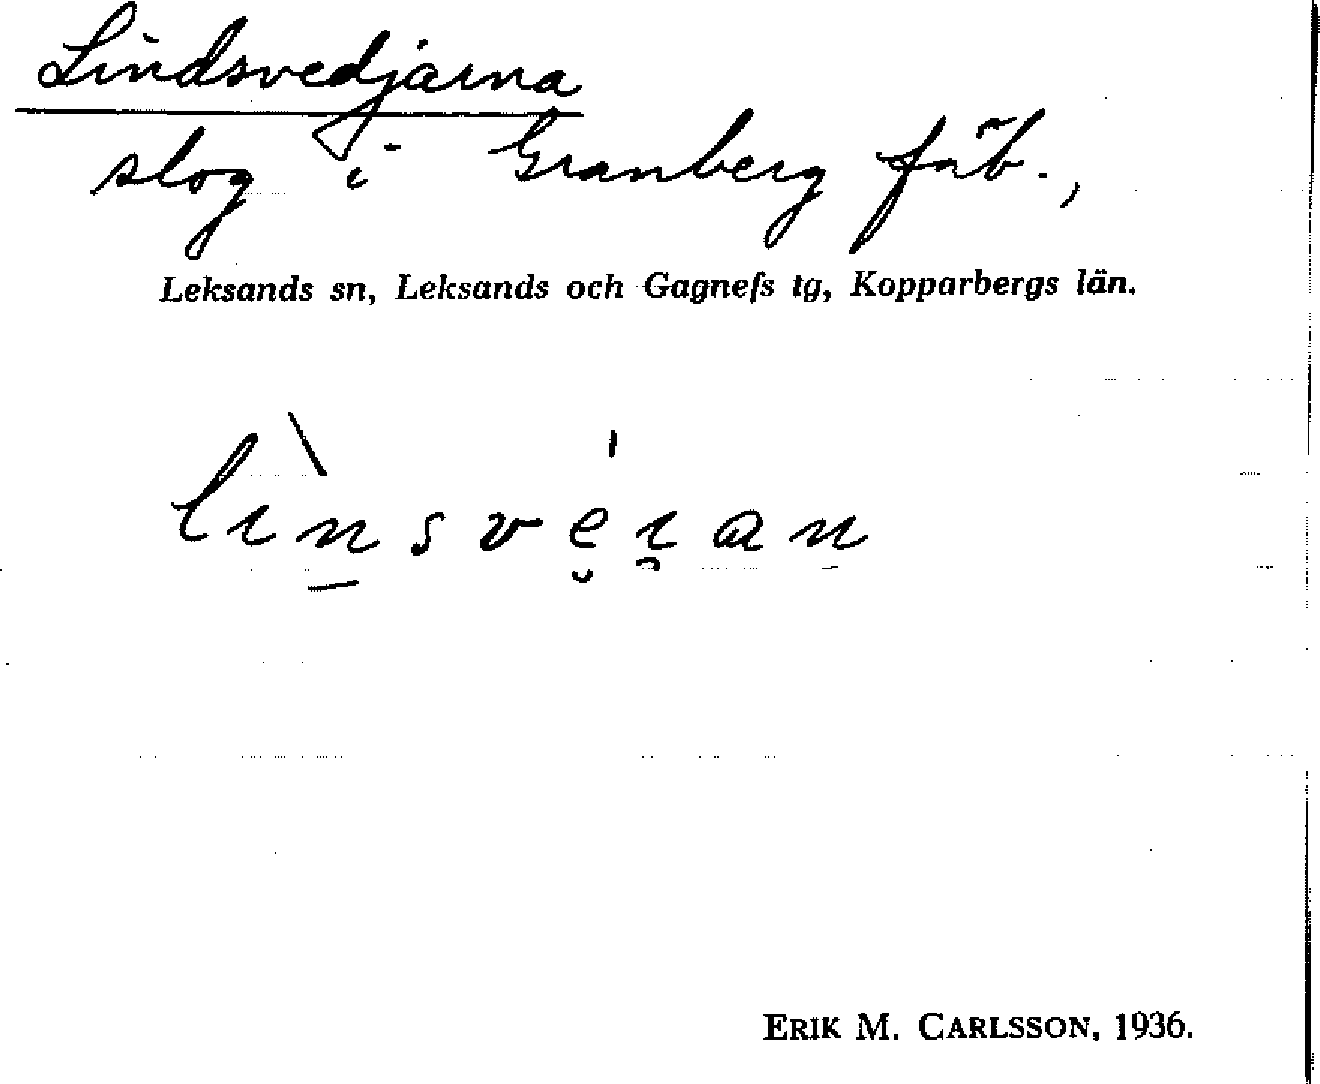 Lindsvedjarna
slog i Granberg fäb.,
Leksands sn, Leksands och Gagnefs tg, Kopparbergs län.
lìn̲sve̮ı̯an
ERIK M. CARLSSON, 1936.